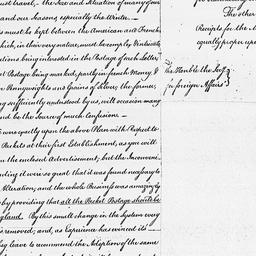 must travel, - the Size and Situation of many of our
and our Seasons especially the Winter. -
s must be kept between the American and French
which, in their very nature, must be compleat
ations being interested in the Postage of each Letter
t Postage being marked, partly in french Money &
in Pennyweights and Grains of Silver; the former
ng sufficiently understood by us, will occasion many
nd be the Source of much Confusion. -
exactly upon the above Plan with Respect to
Packets at their first Establishment, as you will
the enclosed Advertisement; but the Inconveni
nding it were so great that it was found necessary to
Alteration; and the whole Business was amazingly
by providing that all the Packet Postage should be
gland. By this small change in the System every
is removed; and, as Experience has evinced its
beg leave to recommend the Adoption of the same
The other
Receipts for the M
equally proper upo
The Honble the Secy
for foreign Affairs